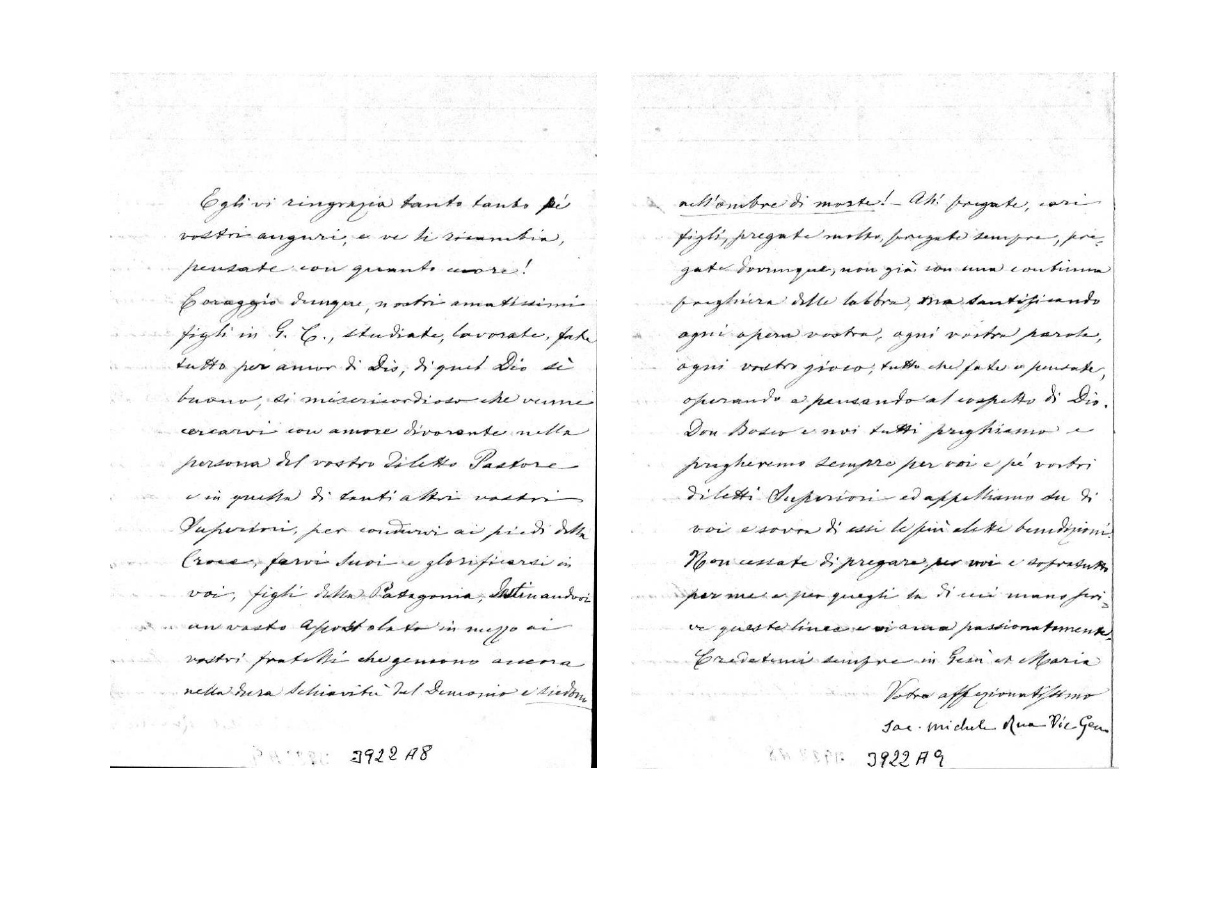 Egli vi ringrazia tanto tanto pé
vostri auguri, e ve li ricambia,
pensate con quanto cuore!
Coraggio dunque, nostri amatissimi
figli in G. C., studiate, lavorate, fate
tutto per amor di Dio, di quel Dio sì
buono, sì misericordioso che venne
cercarvi con amore divorante nella
persona del vostro diletto Pastore
e in quella di tanti altri vostri
Superiori, per condurvi ai piedi della
Croce, farvi Suoi e glorificarsi in
voi, figli della Patagonia, destinandovi
un vasto Apostolato in mezzo ai
vostri fratelli che gemono ancora
nella dura Schiavitù del Demonio e siedono
3922 A8
nell'ombre di morte! – Ah! pregate, cari
figli, pregate molto, pregate sempre, pre-
gate dovunque, non già con una continua
preghiera delle labbra, ma santificando
ogni opera vostra, ogni vostra parola,
ogni vostro gioco, tutto che fate o pensate,
operando e pensando al cospetto di Dio.
Don Bosco e noi tutti preghiamo e
pregheremo sempre per voi e pé vostri
diletti Superiori ed appelliamo su di
voi e sovra di essi le più elette benedizioni.
Non cessate di pregare per noi e sopratutto
per me e per quegli la di cui mano scri-
ve queste linee e vi ama passionatamente.
Credetemi sempre in Gesù et Maria
Vostro affezionatissimo
Sac. Michele Rua Vic. Gen
3922 A9